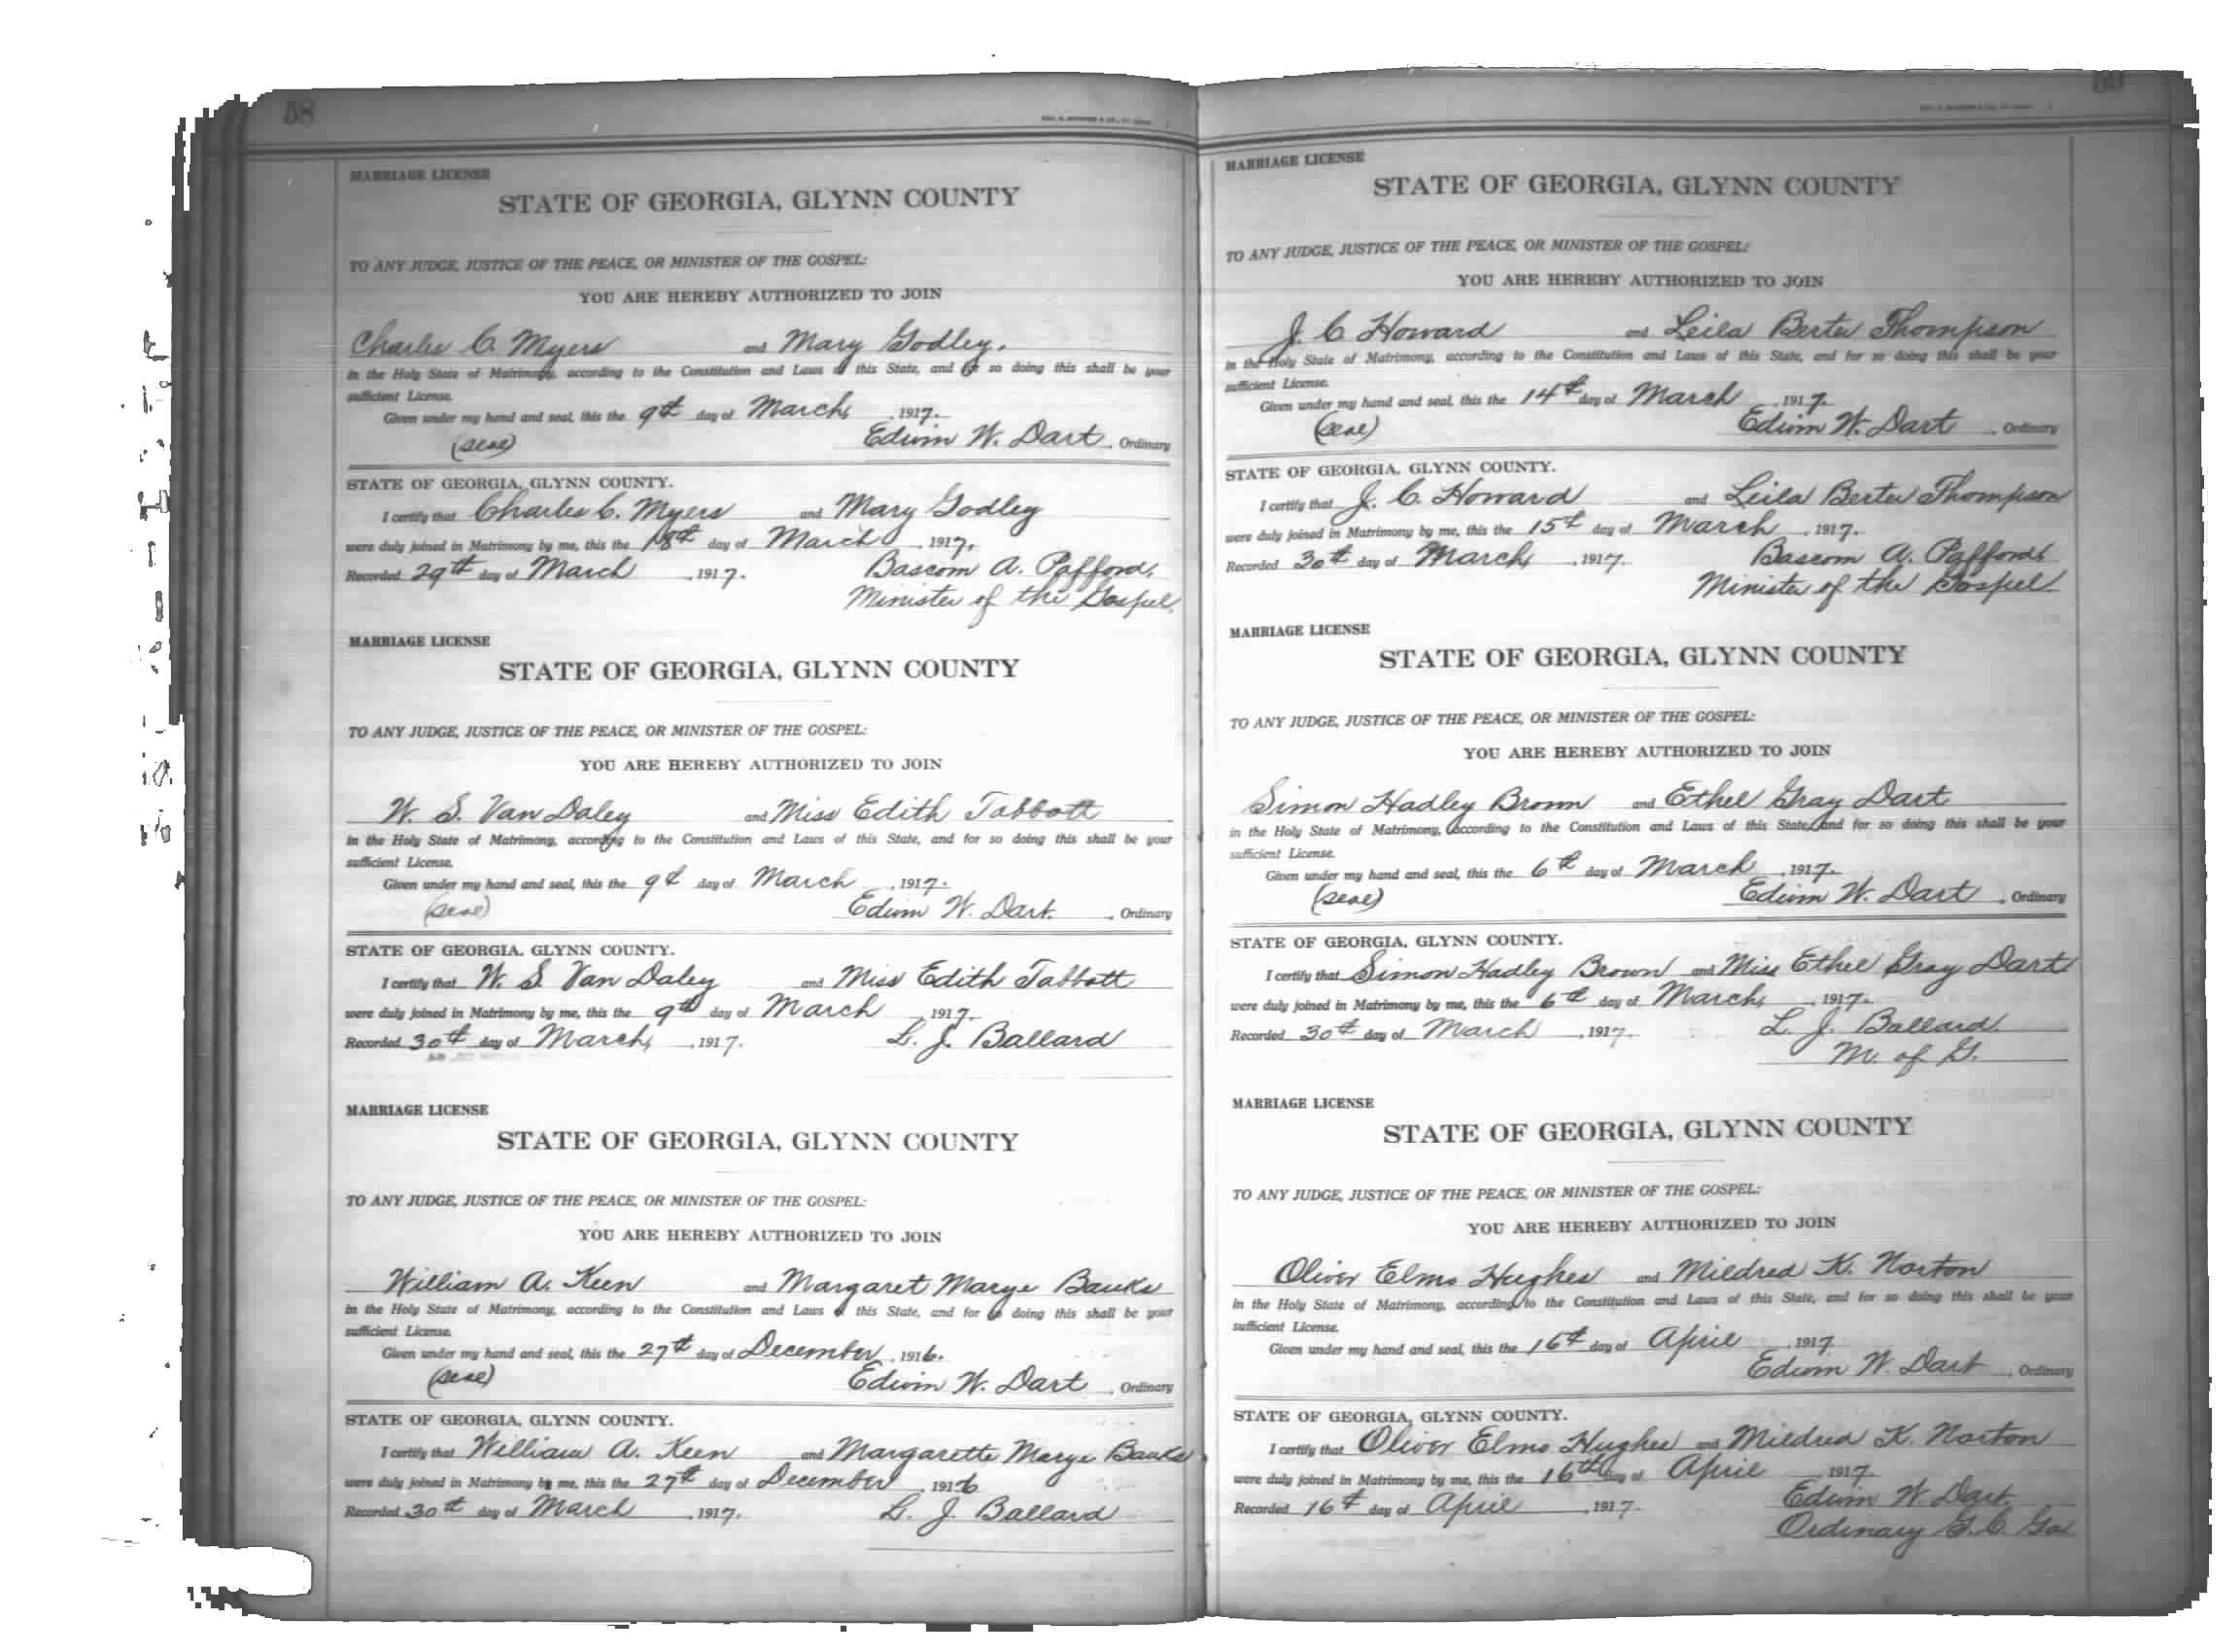 58
MARRIAGE LICENSE
STATE OF GEORGIA, GLYNN COUNTY
TO ANY JUDGE, JUSTICE OF THE PEACE, OR MINISTER OF THE GOSPEL:
YOU ARE HEREBY AUTHORIZED TO JOIN
Charles C. Myers and Mary Godley.
in the Holy State of Matrimony, according to the Constitution and Laws of this State, and for so doing this shall be your
sufficient License.
Given under my hand and seal, this the 9th day of March, 1917.
(seal) Edwin W. Dart, Ordinary
STATE OF GEORGIA, GLYNN COUNTY.
I certify that Charles C. Myers and Mary Godley
were duly joined in Matrimony by me, this the 18th day of March, 1917.
Recorded 29th day of March, 1917. Bascom A. Pafford,
Minister of the Gospel,
MARRIAGE LICENSE
STATE OF GEORGIA, GLYNN COUNTY
TO ANY JUDGE, JUSTICE OF THE PEACE, OR MINISTER OF THE GOSPEL:
YOU ARE HEREBY AUTHORIZED TO JOIN
W. S. Van Daley and Miss Edith Tabbott
in the Holy State of Matrimony, according to the Constitution and Laws of this State, and for so doing this shall be your
sufficient License.
Given under my hand and seal, this the 9th day of March, 1917.
(seal) Edwin W. Dart., Ordinary
STATE OF GEORGIA, GLYNN COUNTY.
I certify that W. S. Van Daley and Miss Edith Tabbott
were duly joined in Matrimony by me, this the 9th day of March, 1917.
Recorded 30th day of March, 1917. L. J. Ballard
MARRIAGE LICENSE
STATE OF GEORGIA, GLYNN COUNTY
TO ANY JUDGE, JUSTICE OF THE PEACE, OR MINISTER OF THE GOSPEL:
YOU ARE HEREBY AUTHORIZED TO JOIN
William A. Keen and Margaret Marye Banks
in the Holy State of Matrimony, according to the Constitution and Laws of this State, and for so doing this shall be your
sufficient License.
Given under my hand and seal, this the 27th day of December, 1916.
(seal) Edwin W. Dart, Ordinary
STATE OF GEORGIA, GLYNN COUNTY.
I certify that William A. Keen and Margarette Marye Banks
were duly joined in Matrimony by me, this the 27th day of December, 1916
Recorded 30th day of March, 1917. L. J. Ballard
59
MARRIAGE LICENSE
STATE OF GEORGIA, GLYNN COUNTY
TO ANY JUDGE, JUSTICE OF THE PEACE, OR MINISTER OF THE GOSPEL:
YOU ARE HEREBY AUTHORIZED TO JOIN
J. C. Howard and Leila Berta Thompson
in the Holy State of Matrimony, according to the Constitution and Laws of this State, and for so doing this shall be your
sufficient License.
Given under my hand and seal, this the 14th day of March, 1917.
(seal) Edwin W. Dart, Ordinary
STATE OF GEORGIA, GLYNN COUNTY.
I certify that J. C. Howard and Leila Berta Thompson
were duly joined in Matrimony by me, this the 15th day of March, 1917.
Recorded 30th day of March, 1917. Bascom A. Pafford,
Minister of the Gospel
MARRIAGE LICENSE
STATE OF GEORGIA, GLYNN COUNTY
TO ANY JUDGE, JUSTICE OF THE PEACE, OR MINISTER OF THE GOSPEL:
YOU ARE HEREBY AUTHORIZED TO JOIN
Simon Hadley Brown and Ethel Gray Dart
in the Holy State of Matrimony, according to the Constitution and Laws of this State, and for so doing this shall be your
sufficient License.
Given under my hand and seal, this the 6th day of March, 1917.
(seal) Edwin W. Dart, Ordinary
STATE OF GEORGIA, GLYNN COUNTY.
I certify that Simon Hadley Brown and Miss Ethel Gray Dart
were duly joined in Matrimony by me, this the 6th day of March, 1917.
Recorded 30th day of March, 1917. L. J. Ballard.
M. of G.
MARRIAGE LICENSE
STATE OF GEORGIA, GLYNN COUNTY
TO ANY JUDGE, JUSTICE OF THE PEACE, OR MINISTER OF THE GOSPEL:
YOU ARE HEREBY AUTHORIZED TO JOIN
Oliver Elmo Hughes and Mildred K. Norton
in the Holy State of Matrimony, according to the Constitution and Laws of this State, and for so doing this shall be your
sufficient License.
Given under my hand and seal, this the 16th day of April, 1917
Edwin W. Dart, Ordinary
STATE OF GEORGIA, GLYNN COUNTY.
I certify that Oliver Elmo Hughes and Mildred K. Norton
were duly joined in Matrimony by me, this the 16th day of April 1917.
Recorded 16th day of April, 1917. Edwin W. Dart.
Ordinary G. C. Ga